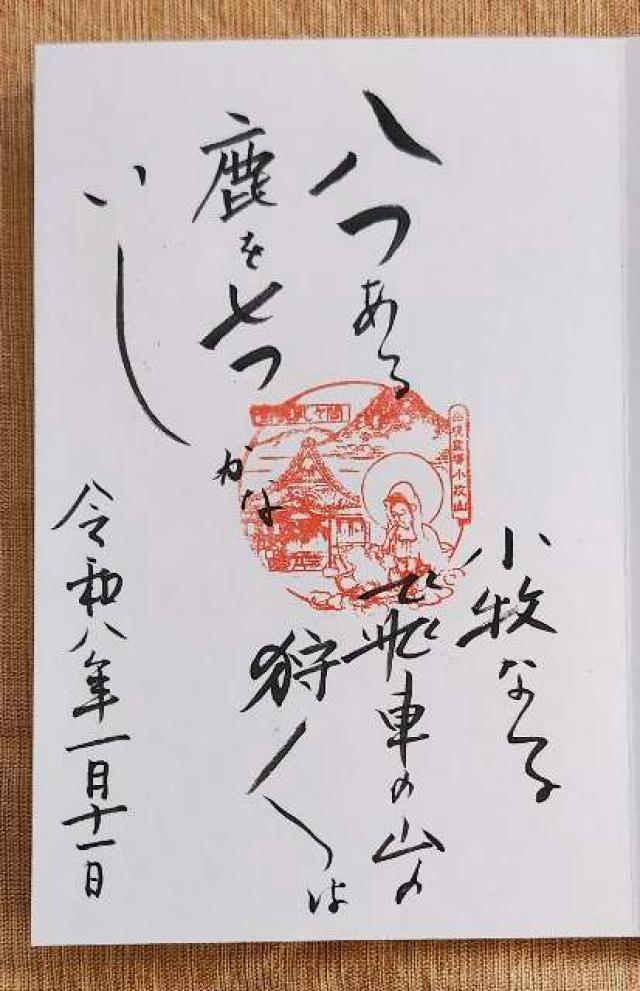 小牧なる
飛車の山の
狩人は
八つある
鹿を七つ
かな
いし
令和八年一月十一日
小牧山